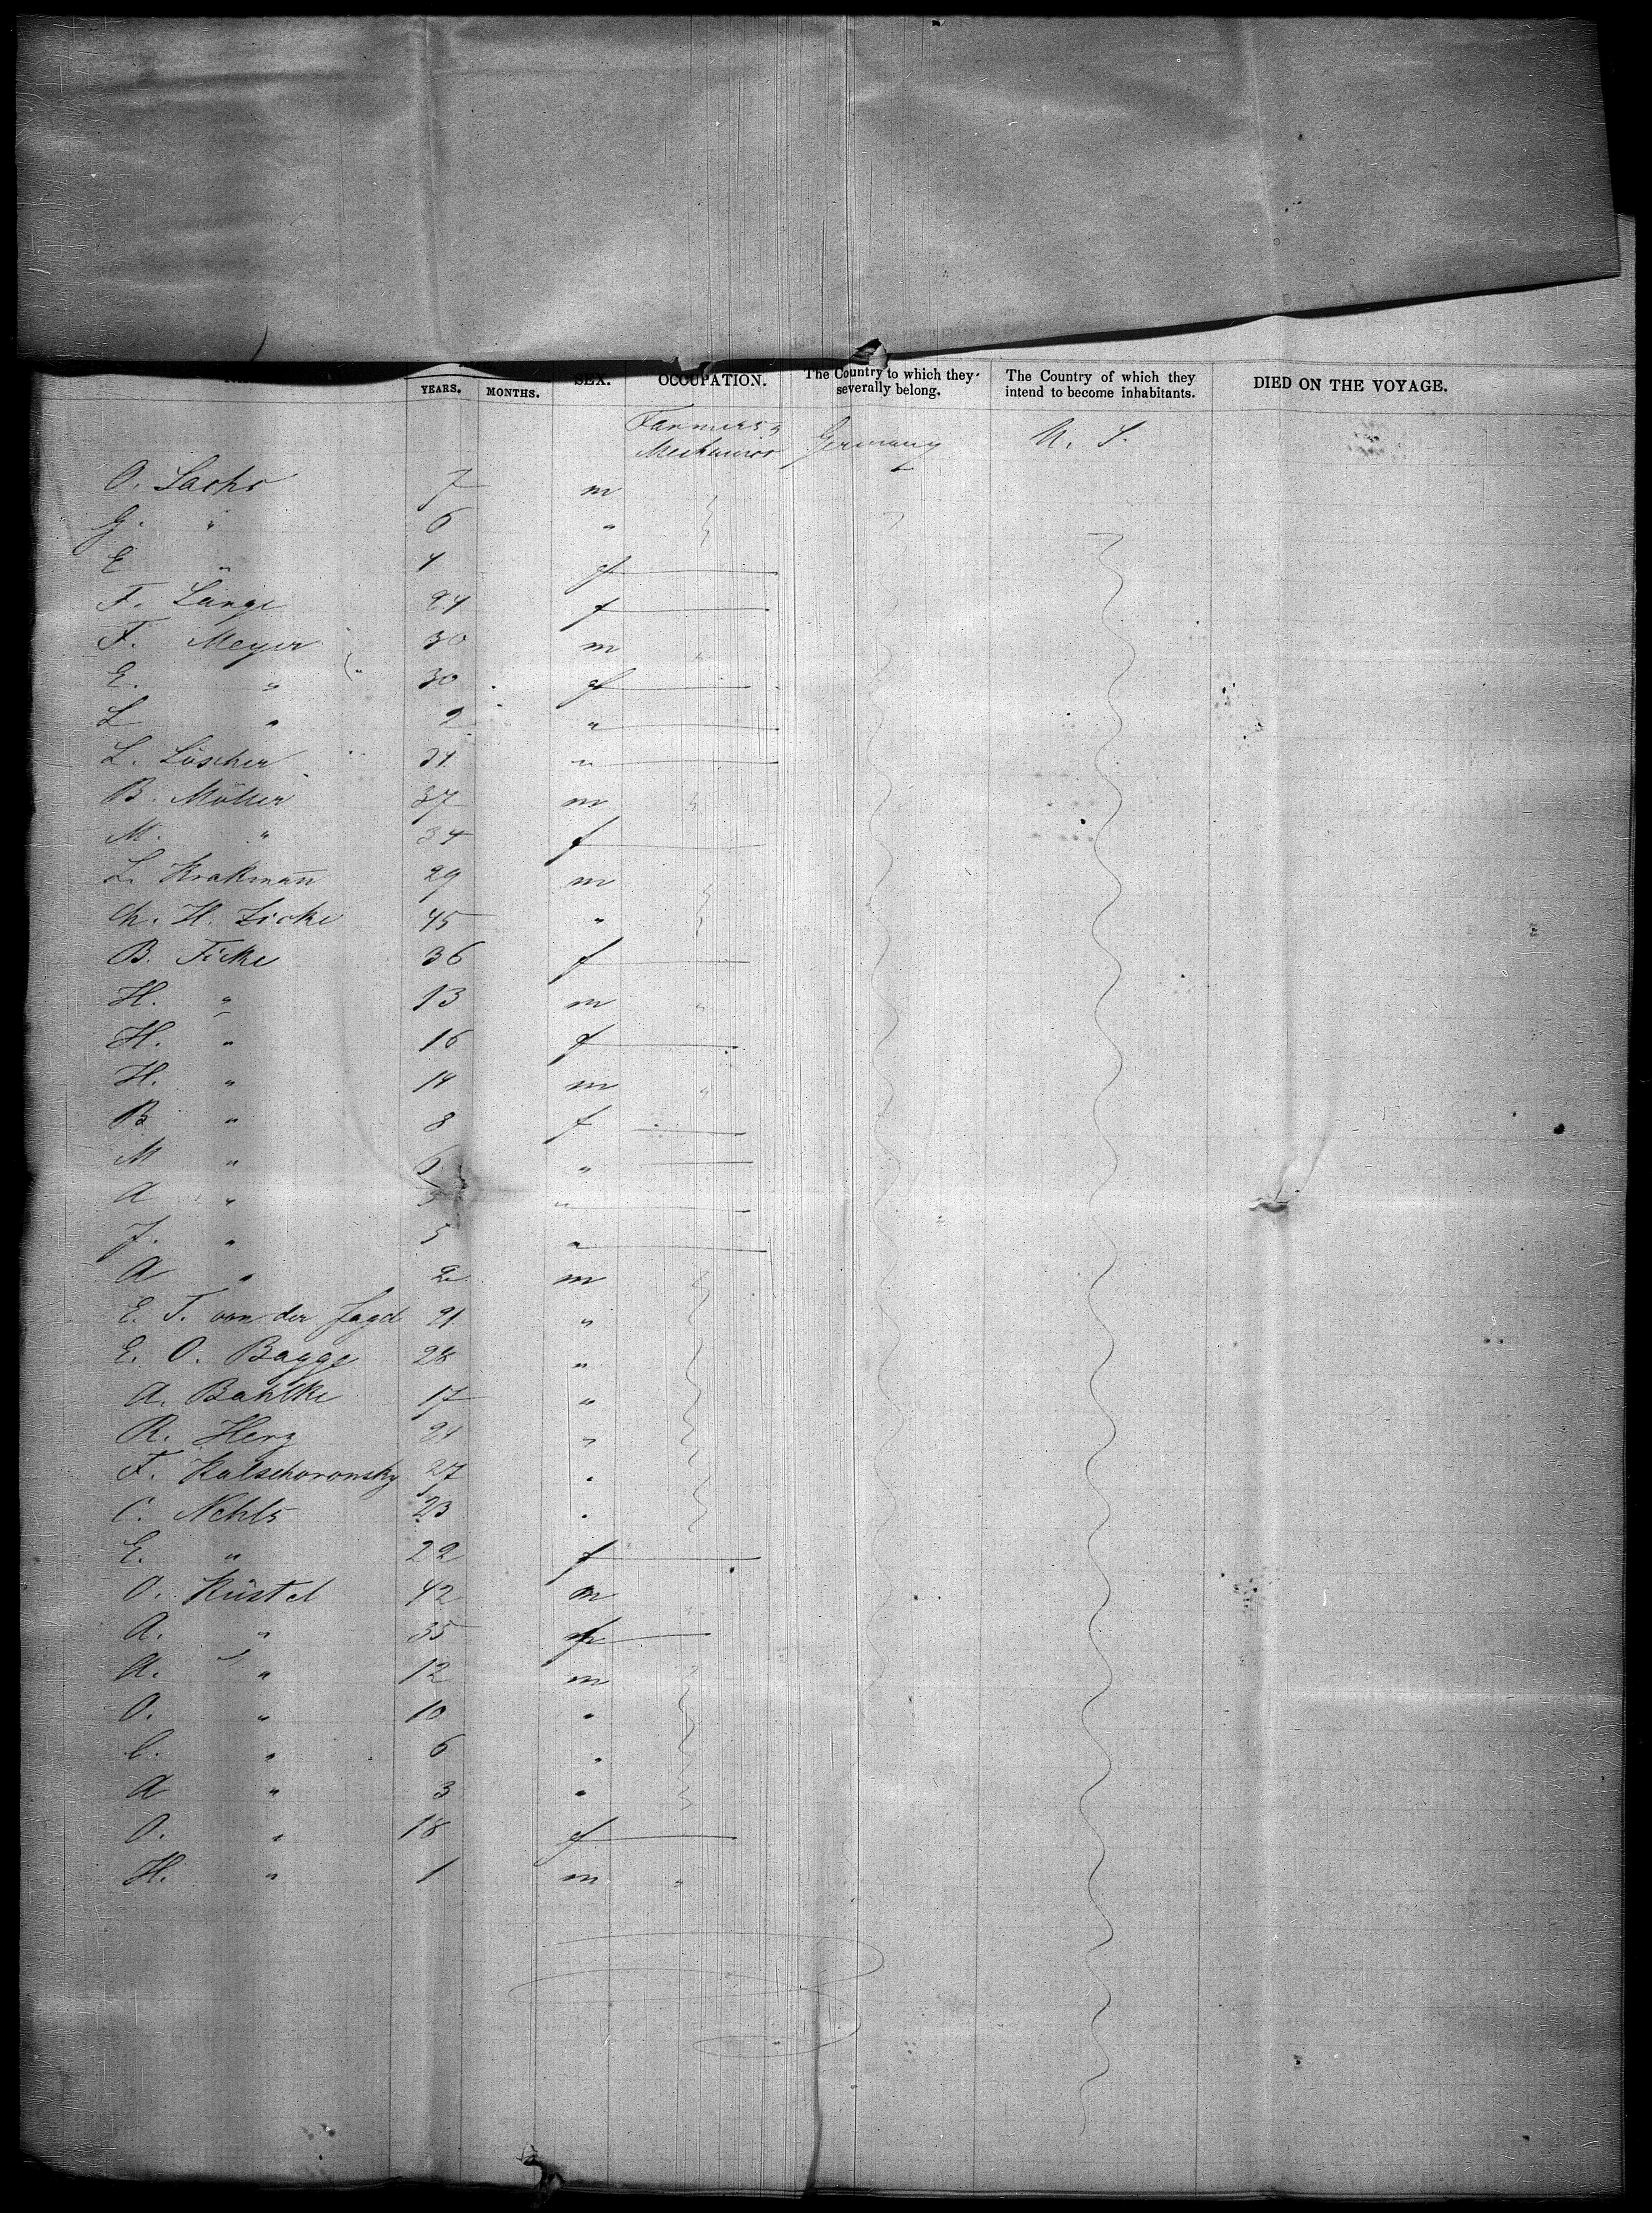 YEARS. MONTHS. SEX. OCCUPATION. The Country to which they severally belong. The Country of which they intend to become inhabitants. DIED ON THE VOYAGE.
Farmers &
Mechanics Germany U. S.
O. Sachs 7 m
G. " 6 "
E " 4 f
F. Lange 24 f
F. Meyer 30 m "
E. " 30 f
L " 2 "
L. Löscher 21 "
B. Möller 37 m "
M. " 34 f
L. Krakmañ 29 m
Ch. H. Ficke 45 "
B. Ficke 36 f
H. " 13 m "
H. " 16 f
H. " 14 m "
B " 8 f
M " 6 "
A " "
J. " 5 "
A " 2 m
E. T. von der Jagd 21 "
E. O. Bagge 28 "
A. Bahlke 17 "
R. Herz 21 "
F. Kalschoronsky 27 "
C. Nehls 23 "
E. " 22 f
O. Rüstel 42 m
A. " 35 f
A. " 12 m
O. " 10 "
C. " 6 "
A " 3 "
O. " 18 f
H. " 1 m "